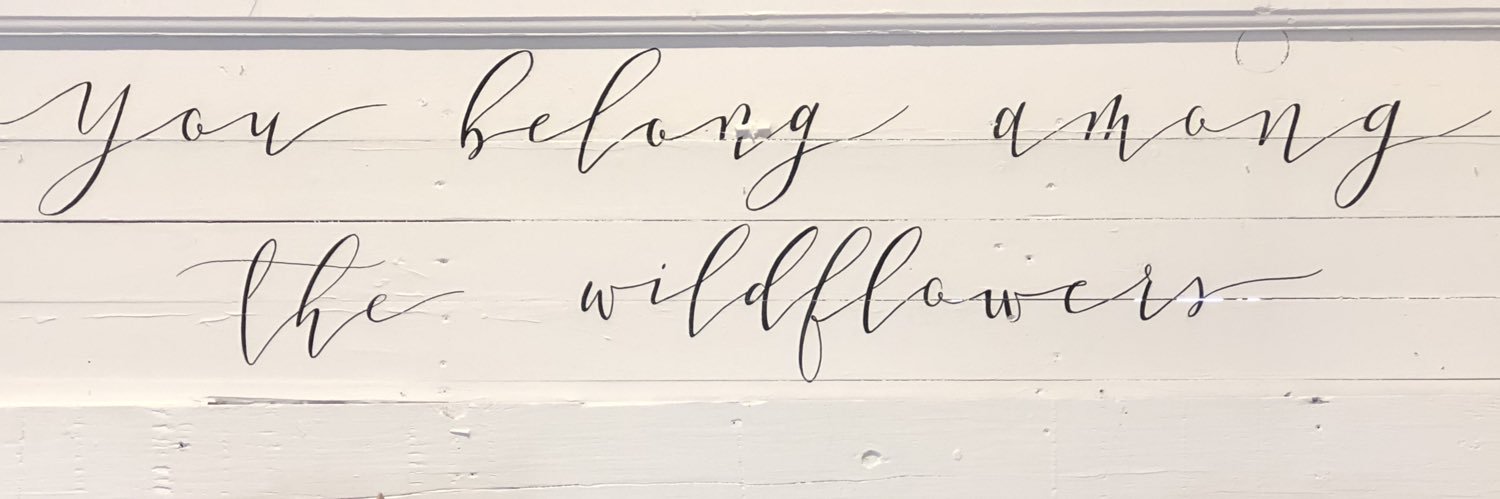 you belong among
the wildflowers